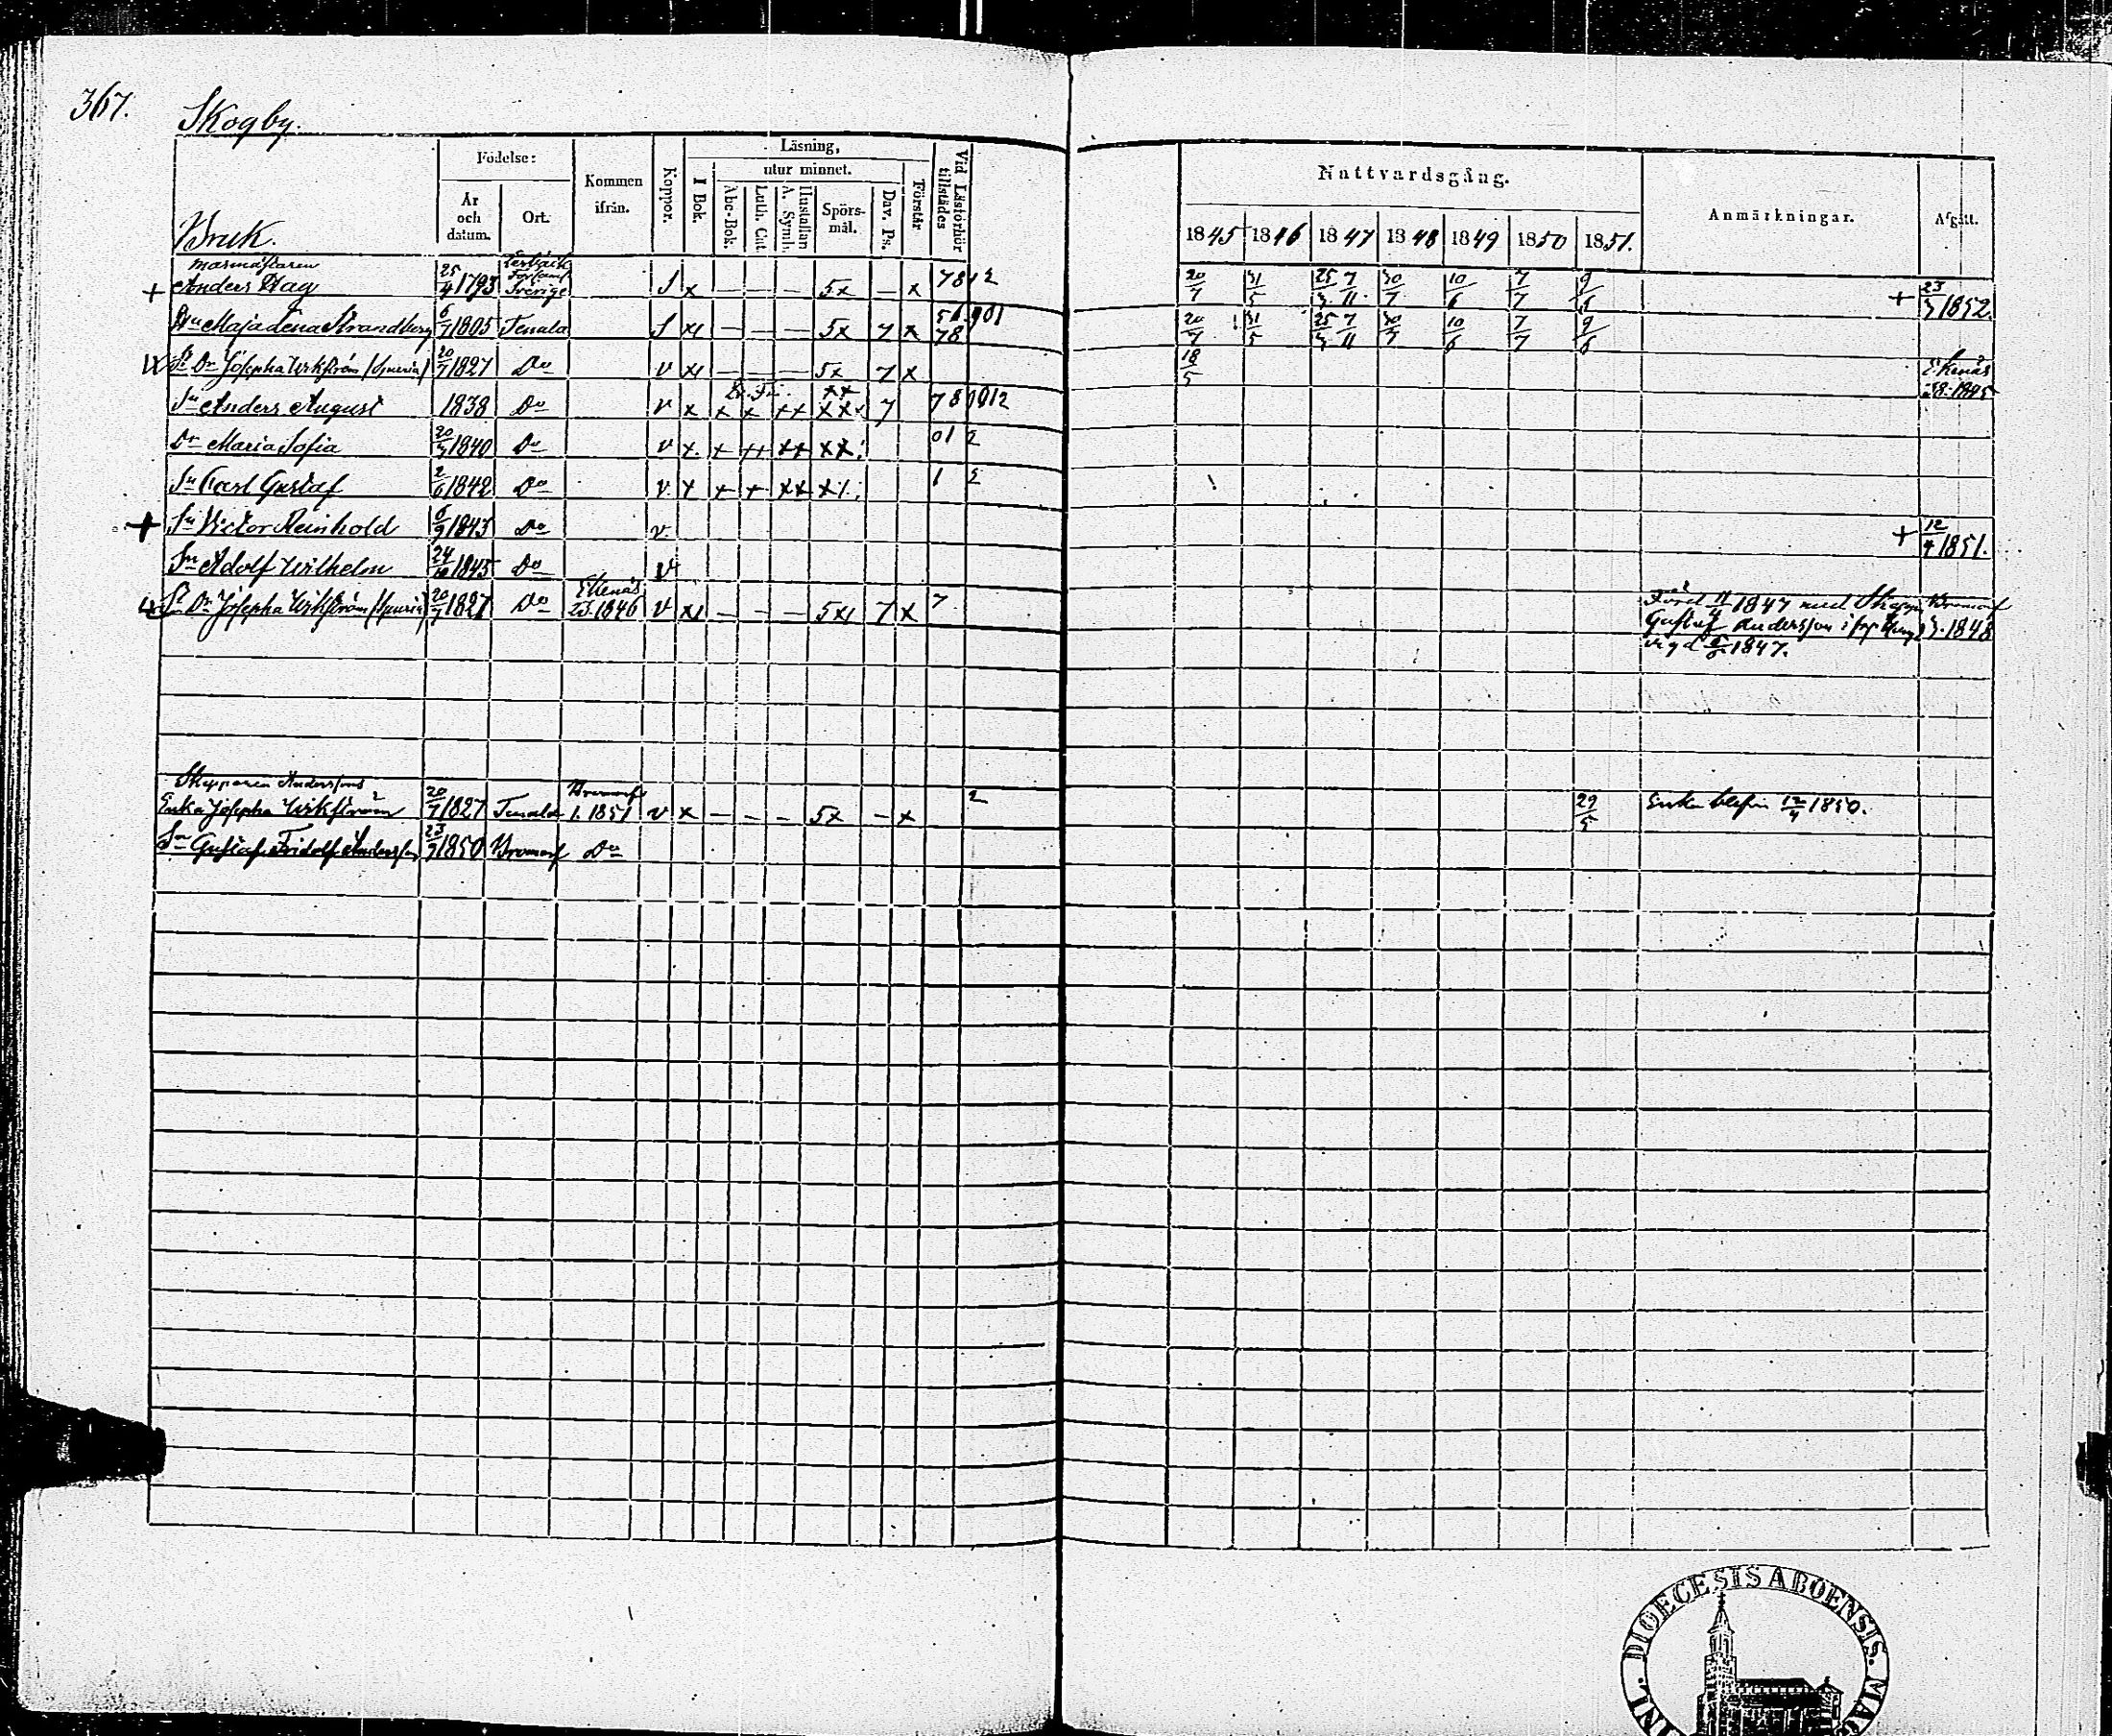 367.
Skogby.
Bruk.
Födelse:
År och datum.
Ort.
Kommen ifrån.
Koppor.
Läsning,
I Bok.
utur minnet.
Abc-Bok.
Luth. Cat.
Hustaflan A. Symb.
Spörsmål.
Dav. Ps.
Förstår
Vid Läsförhör tillstädes
Nattvardsgång.
1845 1846 1847 1848 1849 1850 1851.
Anmärkningar.
Afgått.
Masmästaren
+ Anders Hag 25/4 1793 Sverige S x — — — 5x — x 78 12 20/7 31/5 25/3 7/11 30/7 10/6 7/7 9/6 + 23/3 1852.
Hu Maja Lena Strandberg 6/7 1805 Tenala S x — — — 5x 7 x 78 20/7 31/5 25/3 7/11 30/7 10/6 7/7 9/6
Dr Josepha Wikström (spuria) 20/7 1827 Do v x — — — 5x 7 x 18/5 Ekenäs 1845
Sn Anders August 1838 Do v x x x xx xxx 7
Dr Maria Sofia 20/3 1840 Do v x x xx xx xx 01 2
Sn Carl Gustaf 2/6 1842 Do v x x x xx 1 2
+ Sn Victor Reinhold 6/9 1843 Do v + 12/4 1851.
Sn Adolf Wilhelm 24/10 1845 Do v
Dr Josepha Wikström (spuria) 20/7 1827 Do Ekenäs 1846 v x — — — 5x 7 x 7
1847 med Skepp. Bromarf
Gustaf Andersson 1848
vigd 1847.
Skepparen Anderssons
Enka Josepha Wikström 20/7 1827 Tenala Bromarf 1. 1851 v x — — — 5x — x 2 29/5 Enka blefven 12/4 1850.
Sn Gustaf Fridolf Andersson 23/9 1850 Bromarf Do
DIOECESIS ABOENSIS. MAG